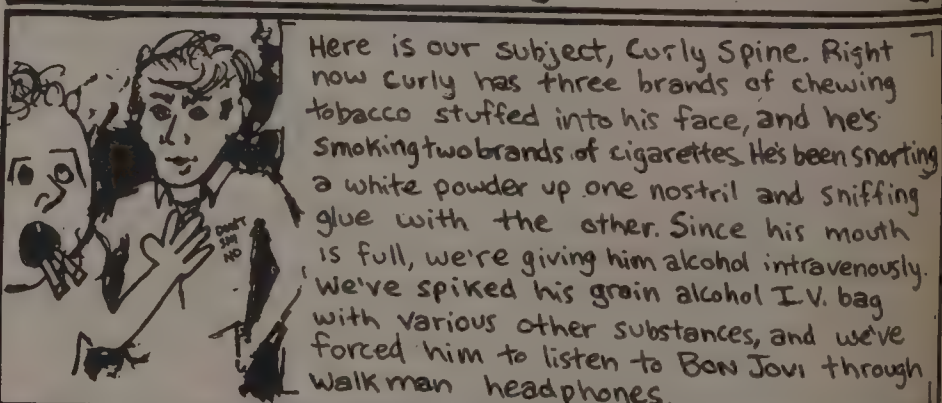 Here is our subject, Curly Spine. Right
now Curly has three brands of chewing
tobacco stuffed into his face, and he's
smoking two brands of cigarettes. He's been snorting
a white powder up one nostril and sniffing
glue with the other. Since his mouth
is full, we're giving him alcohol intravenously.
We've spiked his grain alcohol I.V. bag
with various other substances, and we've
forced him to listen to BON JOVI through
walkman headphones.
DON'T
SAY
NO